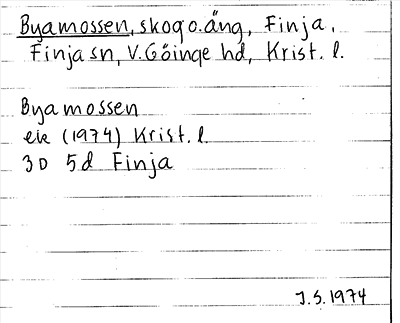 Byamossen, skog o. äng, Finja,
Finja sn, V. Göinge hd, Krist. l.
Byamossen
ek (1974) Krist. l.
3D 5d Finja
J.S. 1974